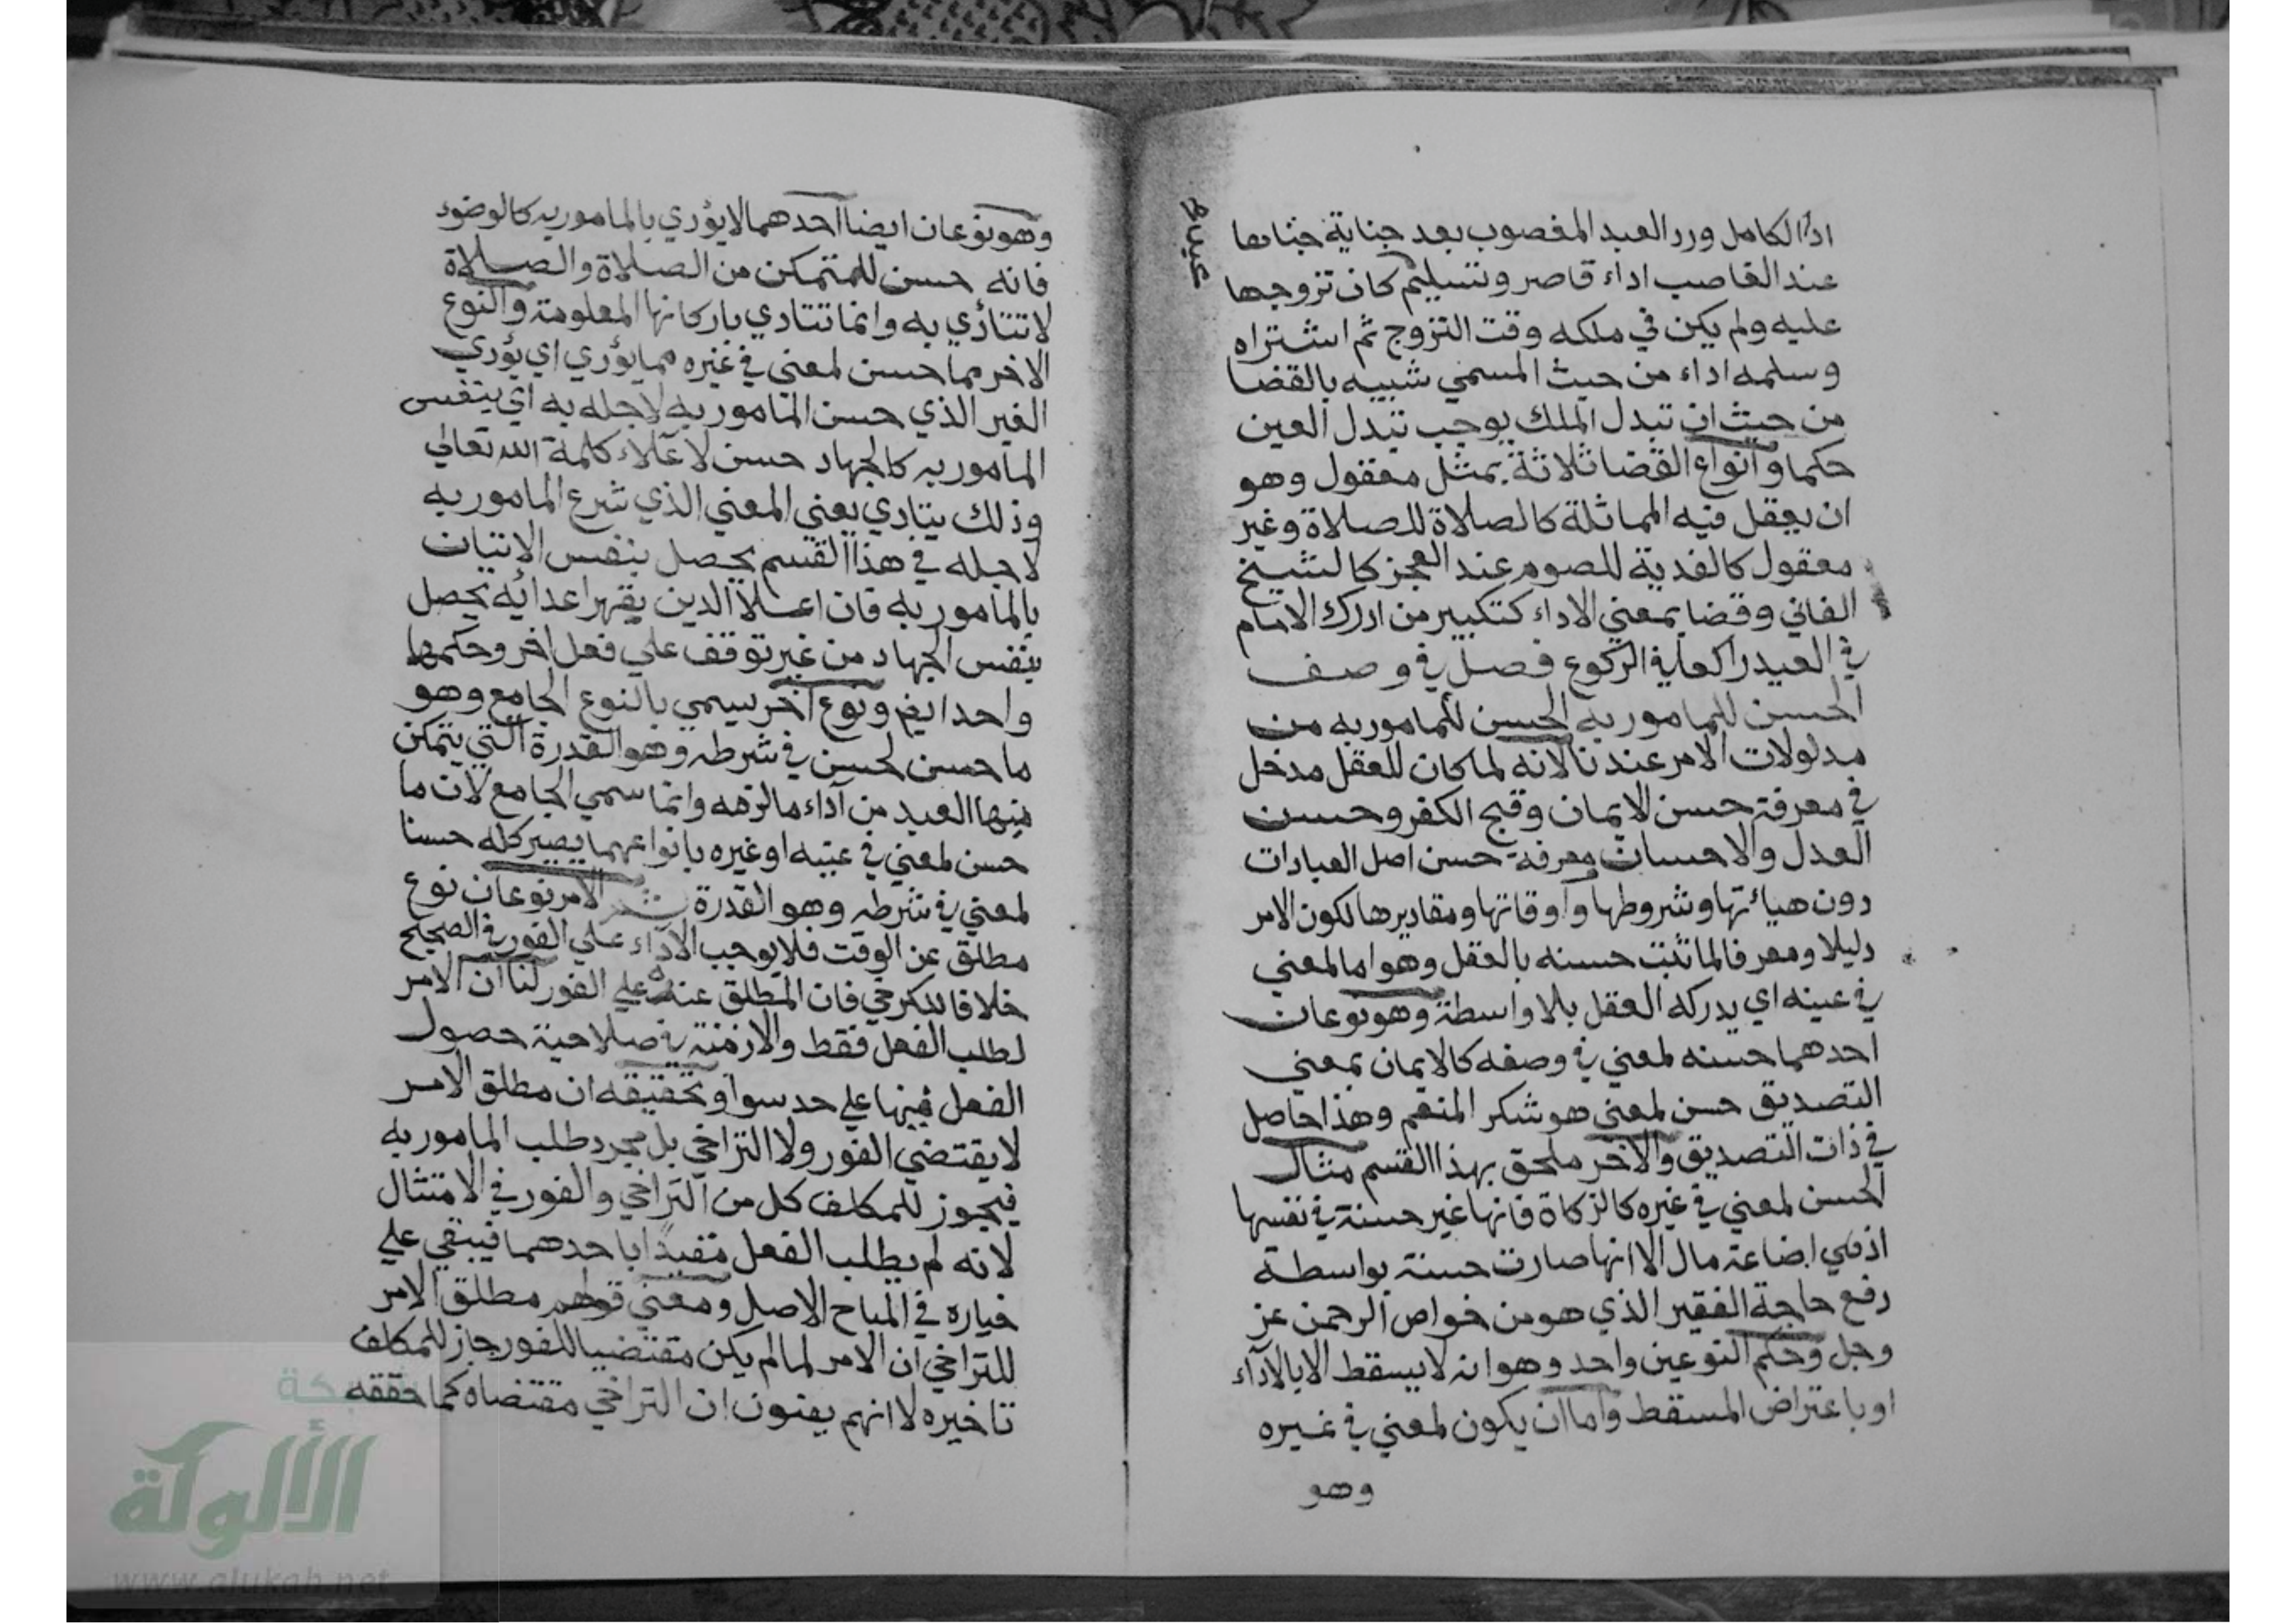 اداً الكامل ورد العبد المغصوب بعد جناية جناها
عند الغاصب اداء قاصر وتسليم كان تزوجها
عبد
عليه ولم يكن في ملكه وقت التزوج ثم اشتراه
وسلمه اداء من حيث المسمي شبيه بالقضا
من حيث ان تبدل الملك يوجب تبدل العين
حكما وانواع القضا ثلاثة بمثل معقول وهو
ان يعقل فيه المماثلة كالصلاة للصلاة وغير
معقول كالفدية للصوم عند العجز كالشيخ
الفاني وقضا بمعني الاداء كتكبير من ادرك الامام
في العيد راكعا في الركوع فصل في وصف
الحسن للمامور به الحسن للمامور به من
مدلولات الامر عندنا لانه لما كان للعقل مدخل
في معرفة حسن الايمان وقبح الكفر وحسن
العدل والاحسان ومعرفة حسن اصل العبادات
دون هيائتها وشروطها واوقاتها ومقاديرها لكون الامر
دليلا ومعرفا لما ثبت حسنه بالعقل وهو اما لمعني
في عينه اي يدركه العقل بلا واسطة وهو نوعان
احدهما حسنه لمعني في وصفه كالايمان بمعني
التصديق حسن لمعني هو شكر المنعم وهذا حاصل
في ذات التصديق والاخر ملحق بهذا القسم مثال
الحسن لمعني في غيره كالزكاة فانها غير حسنة في نفسها
اذ هي اضاعة مال الا انها صارت حسنة بواسطة
رفع حاجة الفقير الذي هو من خواص الرحمن عز
وجل وحكم النوعين واحد وهو انه لا يسقط الا بالاداء
او باعتراض المسقط واما ان يكون لمعني في غيره
وهو
وهو نوعان ايضا احدهما لا يؤدي بالمامور به كالوضوء
فانه حسن للتمكن من الصلاة والصلاة
لا تتأدي به وانما تتادي باركانها المعلومة والنوع
الاخر مما حسن لمعني في غيره مما يؤدي اي يؤدي
الغير الذي حسن المامور به لاجله به اي بنفس
المامور به كالجهاد حسن لاعلاء كلمة الله تعالي
وذلك يتادي يعني المعني الذي شرع المامور به
لاجله في هذا القسم يحصل بنفس الاتيان
بالمامور به فان اعلا الدين بقهر اعدائه يحصل
بنفس الجهاد من غير توقف علي فعل اخر وحكمها
واحد ايض ونوع اخر يسمي بالنوع الجامع وهو
ما حسن لحسن في شرطه وهو القدرة التي يتمكن
بها العبد من آداء ما لزمه وانما سمي الجامع لان ما
حسن لمعني في عينه او غيره بانواعهما يصير كله حسنا
لمعني في شرطه وهو القدرة ثم الامر نوعان نوع
مطلق عن الوقت فلا يوجب الاداء علي الفور في الصحيح
خلافا للكرخي فان المطلق عنده علي الفور لنا ان الامر
لطلب الفعل فقط والازمنة في صلاحية حصول
الفعل فيها علي حد سوا وتحقيقه ان مطلق الامر
لا يقتضي الفور ولا التراخي بل مجرد طلب المامور به
فيجوز للمكلف كل من التراخي والفور في الامتثال
لانه لم يطلب الفعل مقيدا باحدهما فيبقي علي
خياره في المباح الاصل ومعني قولهم مطلق الامر
للتراخي ان الامر لما لم يكن مقتضيا للفور جاز للمكلف
تاخيره لا انهم يعنون ان التراخي مقتضاه كما حققه
شبكة
الألوكة
www.alukah.net